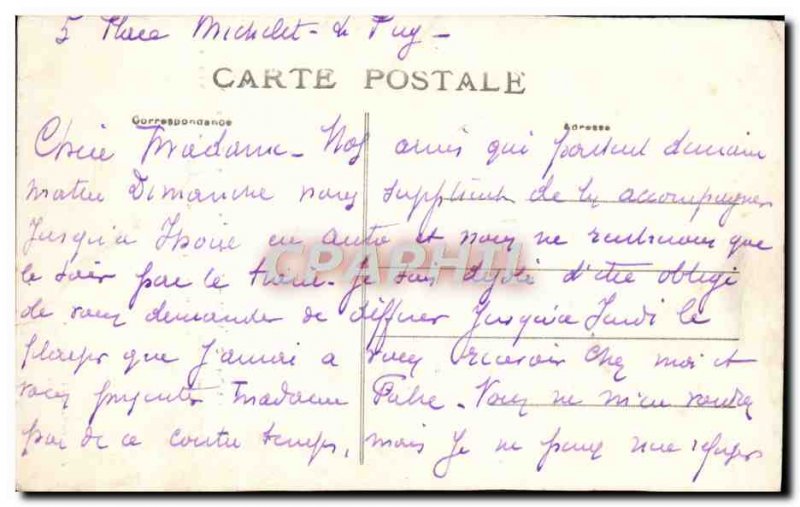 5 Place Michelet - Le Puy -
CARTE POSTALE
Correspondance
Adresse
Chère Madame - Nos amis qui partent demain
matin Dimanche nous supplient de les accompagner
jusqu'à Issoire en auto et nous ne rentrerons que
le soir par le train. Je suis désolé d'être obligé
de vous demander de différer jusqu'à Jeudi le
plaisir que j'aurai à vous recevoir chez moi et
vous présenter Madame Fabre - Vous ne m'en voudrez
pas de ce contre temps, mais je ne puis me refuser
CPARPHIL